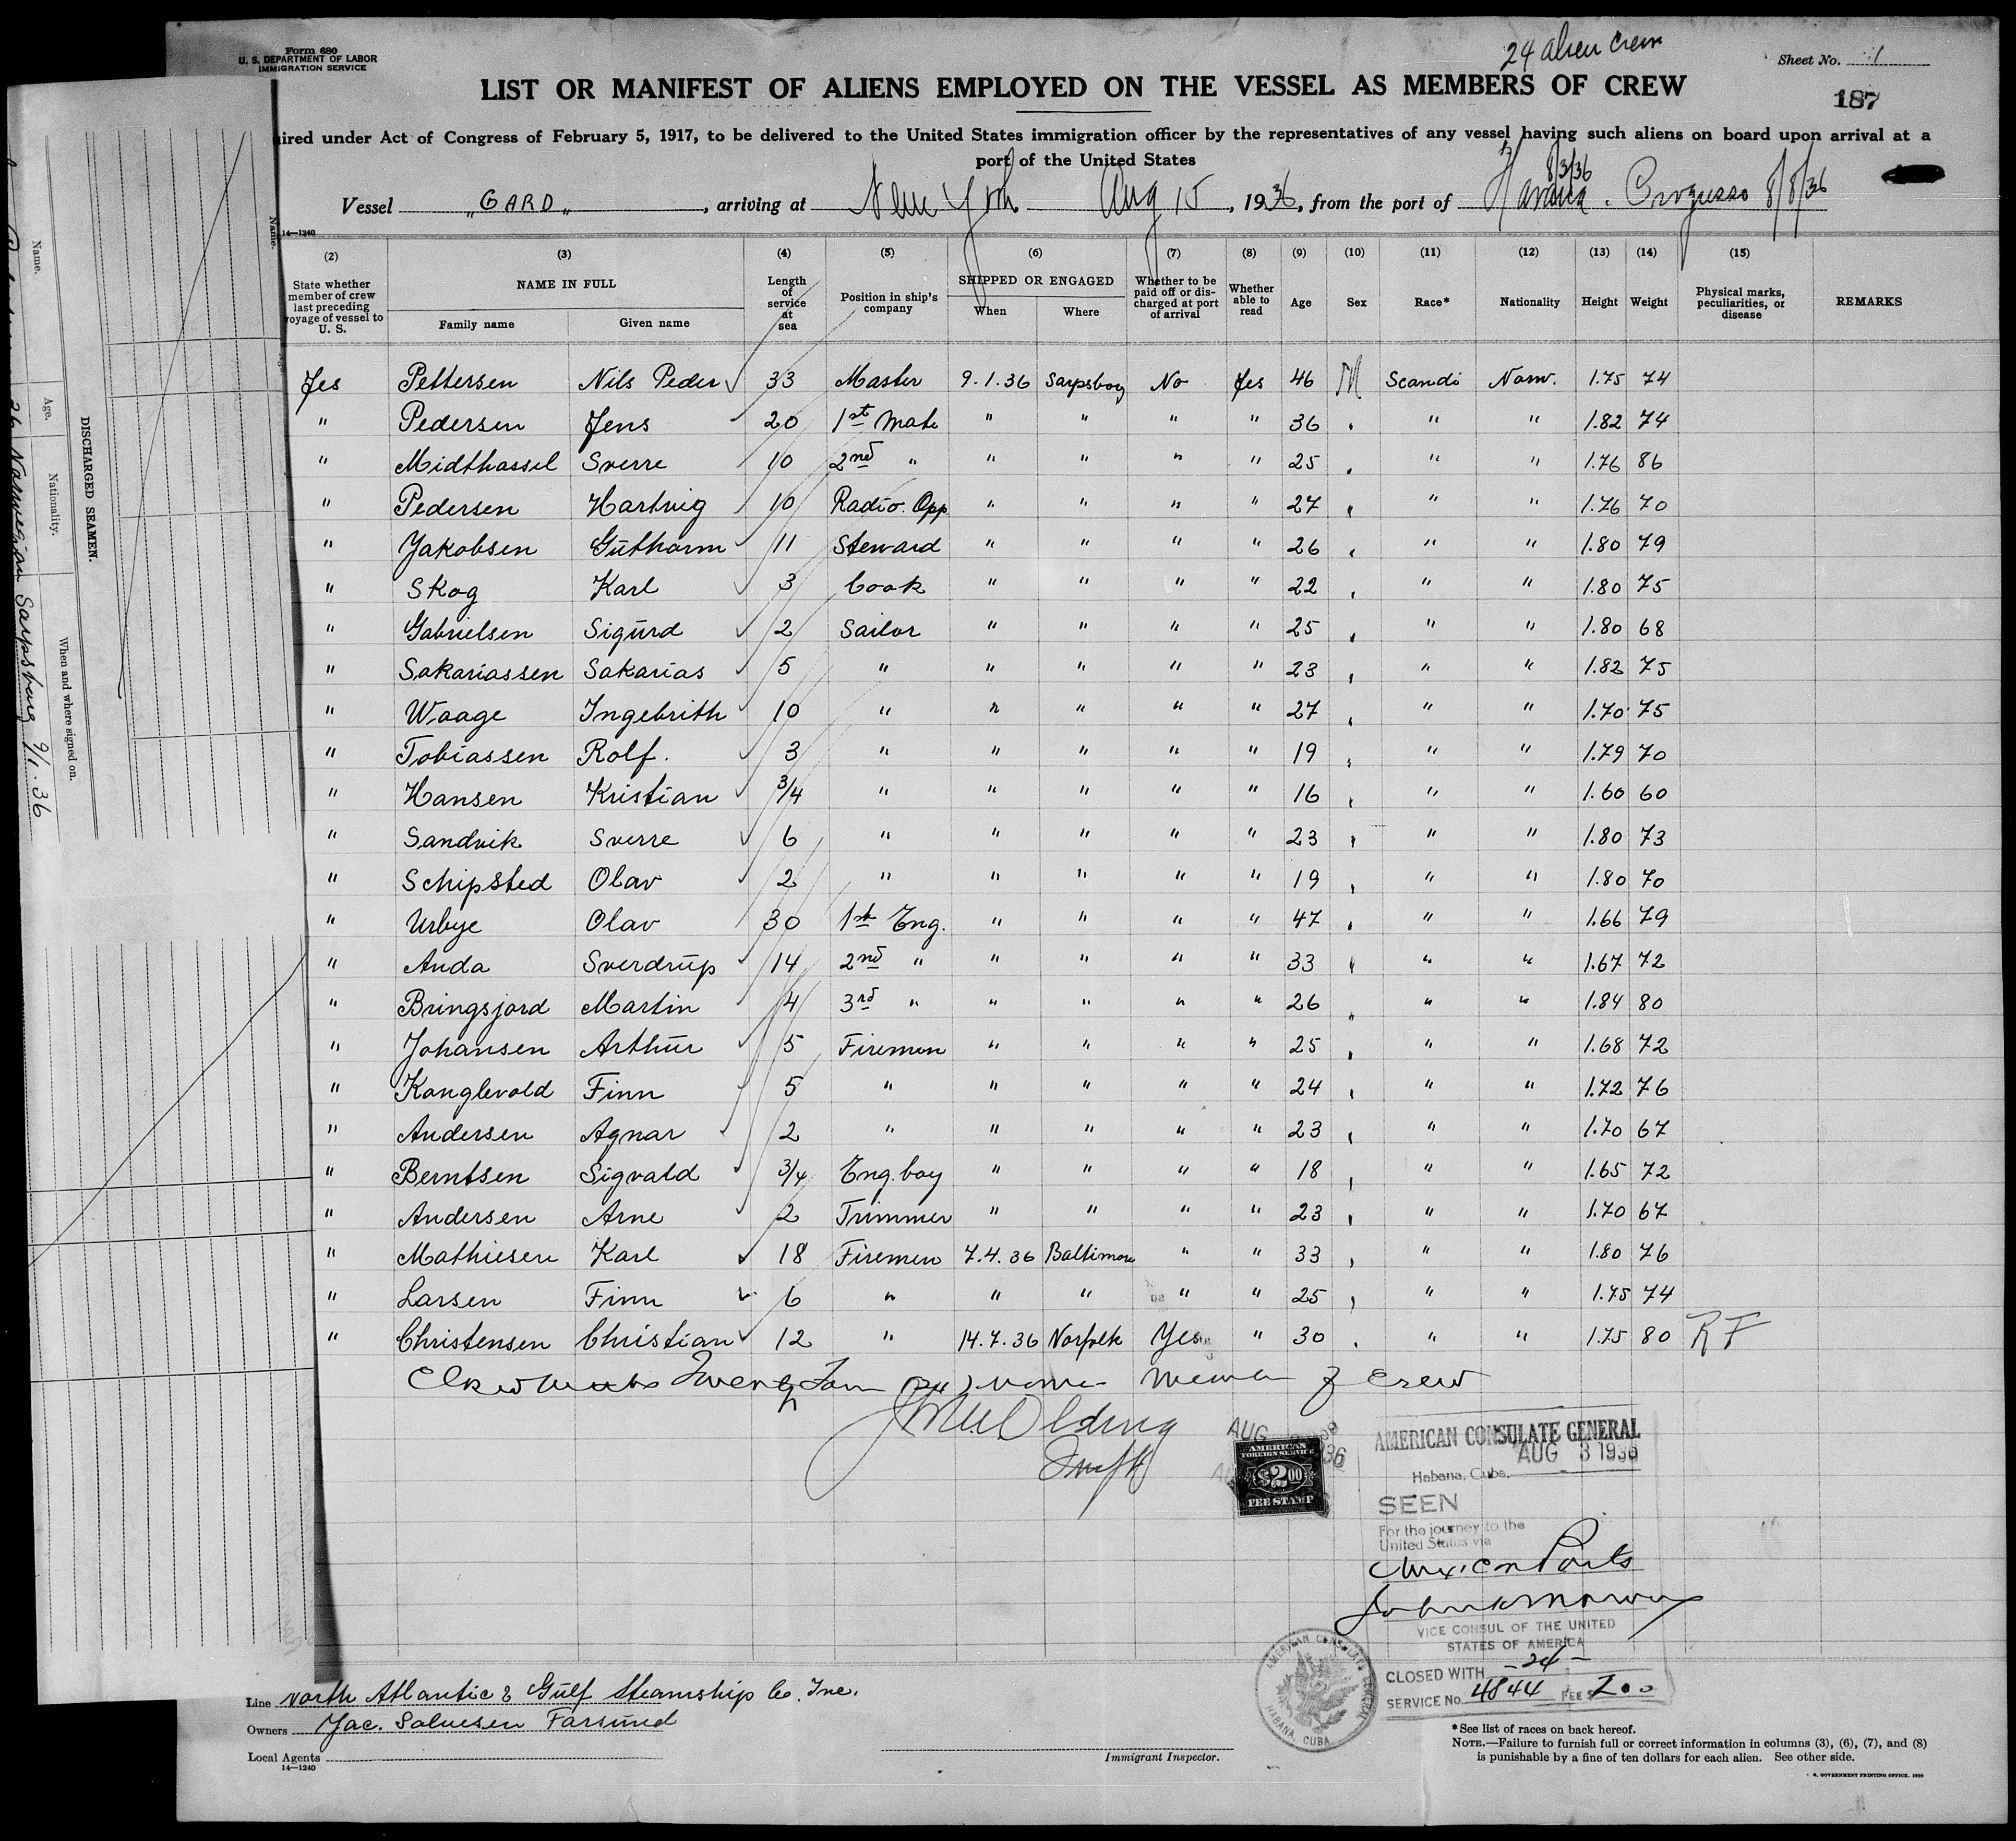 Form 680
U. S. DEPARTMENT OF LABOR
IMMIGRATION SERVICE
24 alien crew
Sheet No. 1
LIST OR MANIFEST OF ALIENS EMPLOYED ON THE VESSEL AS MEMBERS OF CREW
187
ired under Act of Congress of February 5, 1917, to be delivered to the United States immigration officer by the representatives of any vessel having such aliens on board upon arrival at a
port of the United States
8/3/36
Vessel „GARD„, arriving at New York Aug 15, 1936, from the port of Havana. Progresso 8/8/36
14—1240
(2) (3) (4) (5) (6) (7) (8) (9) (10) (11) (12) (13) (14) (15)
State whether member of crew last preceding voyage of vessel to U. S. NAME IN FULL Family name Given name Length of service at sea Position in ship's company SHIPPED OR ENGAGED When Where Whether to be paid off or discharged at port of arrival Whether able to read Age Sex Race* Nationality Height Weight Physical marks, peculiarities, or disease REMARKS
Yes Pettersen Nils Peder 33 Master 9.1.36 Sarpsborg No Yes 46 M Scandi Norw. 1.75 74
" Pedersen Jens 20 1st Mate " " " " 36 " " 1.82 74
" Midthassel Sverre 10 2nd " " " " " 25 " " 1.76 86
" Pedersen Hartvig 10 Radio. Opp. " " " " 27 " " 1.76 70
" Jakobsen Guthorm 11 Steward " " " " 26 " " 1.80 79
" Skog Karl 3 Cook " " " " 22 " " 1.80 75
" Gabrielsen Sigurd 2 Sailor " " " " 25 " " 1.80 68
" Sakariassen Sakarias 5 " " " " " 23 " " 1.82 75
" Waage Ingebrith 10 " " " " " 27 " " 1.70 75
" Tobiassen Rolf. 3 " " " " " 19 " " 1.79 70
" Hansen Kristian 3/4 " " " " " 16 " " 1.60 60
" Sandvik Sverre 6 " " " " " 23 " " 1.80 73
" Schipsted Olav 2 " " " " " 19 " " 1.80 70
" Urbye Olav 30 1st Eng. " " " " 47 " " 1.66 79
" Anda Sverdrup 14 2nd " " " " " 33 " " 1.67 72
" Bringsjord Martin 4 3rd " " " " " 26 " " 1.84 80
" Johansen Arthur 5 Firemen " " " " 25 " " 1.68 72
" Kanglevold Finn 5 " " " " " 24 " " 1.72 76
" Andersen Agnar 2 " " " " " 23 " " 1.70 67
" Berntsen Sigvald 3/4 Eng. boy " " " " 18 " " 1.65 72
" Andersen Arne 2 Trimmer " " " " 23 " " 1.70 67
" Mathiesen Karl 18 Firemen 7.4.36 Baltimore " " 33 " " 1.80 76
" Larsen Finn 6 " " " " " 25 " " 1.75 74
" Christensen Christian 12 " 14.7.36 Norfolk Yes " 30 " " 1.75 80 R F
Closed with Twenty Four (24) names member of crew
AMERICAN FOREIGN SERVICE
$2.00
FEE STAMP
AMERICAN CONSULATE GENERAL
AUG 3 1936
Habana, Cuba,
SEEN
For the journey to the
United States via
Mexican Ports
VICE CONSUL OF THE UNITED
STATES OF AMERICA
CLOSED WITH -24-
SERVICE No. 4844 FEE $ 2.00
AMERICAN CONSULATE GENERAL
HABANA, CUBA
Line North Atlantic & Gulf Steamship Co. Inc.
Owners Jac. Salvesen Farsund
Local Agents
14—1240
Immigrant Inspector.
*See list of races on back hereof.
NOTE.—Failure to furnish full or correct information in columns (3), (6), (7), and (8)
is punishable by a fine of ten dollars for each alien. See other side.
DISCHARGED SEAMEN.
Name. Age. Nationality. When and where signed on.
26 Norwegian Sarpsborg 9/1.36
Name.